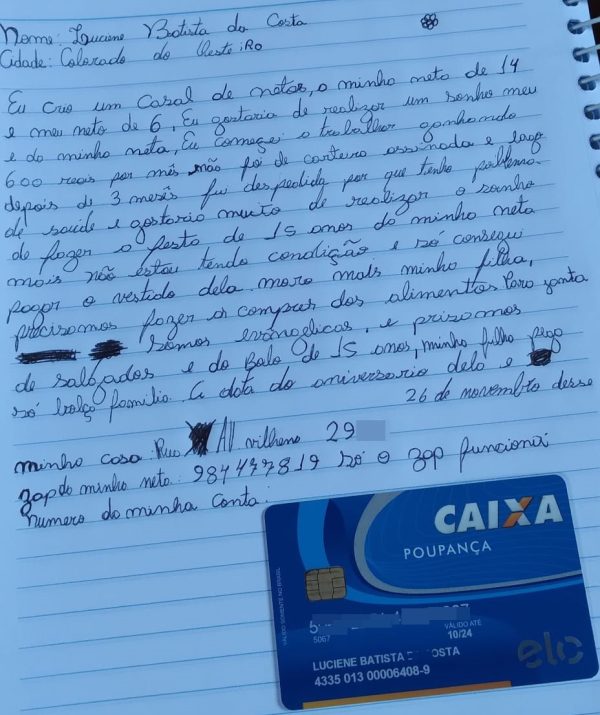 Nome: Luciene Batista da Costa
Cidade: Colorado do Oeste :RO
Eu crio um Casal de netos, a minha neta de 14
e meu neto de 6, Eu gostaria de realizar um sonho meu
e da minha neta, Eu começei a trabalhar ganhando
600 reais por mês não foi de carteira assinada e logo
depois de 3 mesês fui despedida por que tenho problema
de saúde e gostaria muito de realizar o sonho
de fazer a festa de 15 anos da minha neta
mais não estou tendo condição e só consegui
pagar o vestido dela mora mais minha filha,
precisamos fazer as compras dos alimentos para janta
Somos evangelicas, e prisamos
de salgados e do Bolo de 15 anos, minha filha pega
só bolça familia. A data do aniversario dela e
26 de novembro desse
minha casa: Rua AV vilhena 29
zap da minha neta: 984477819 só o zap funciona
numero da minha conta:
CAIXA
POUPANÇA
VÁLIDO SOMENTE NO BRASIL
5067
VÁLIDO ATÉ
10/24
LUCIENE BATISTA OSTA
4335 013 00006408-9
elo